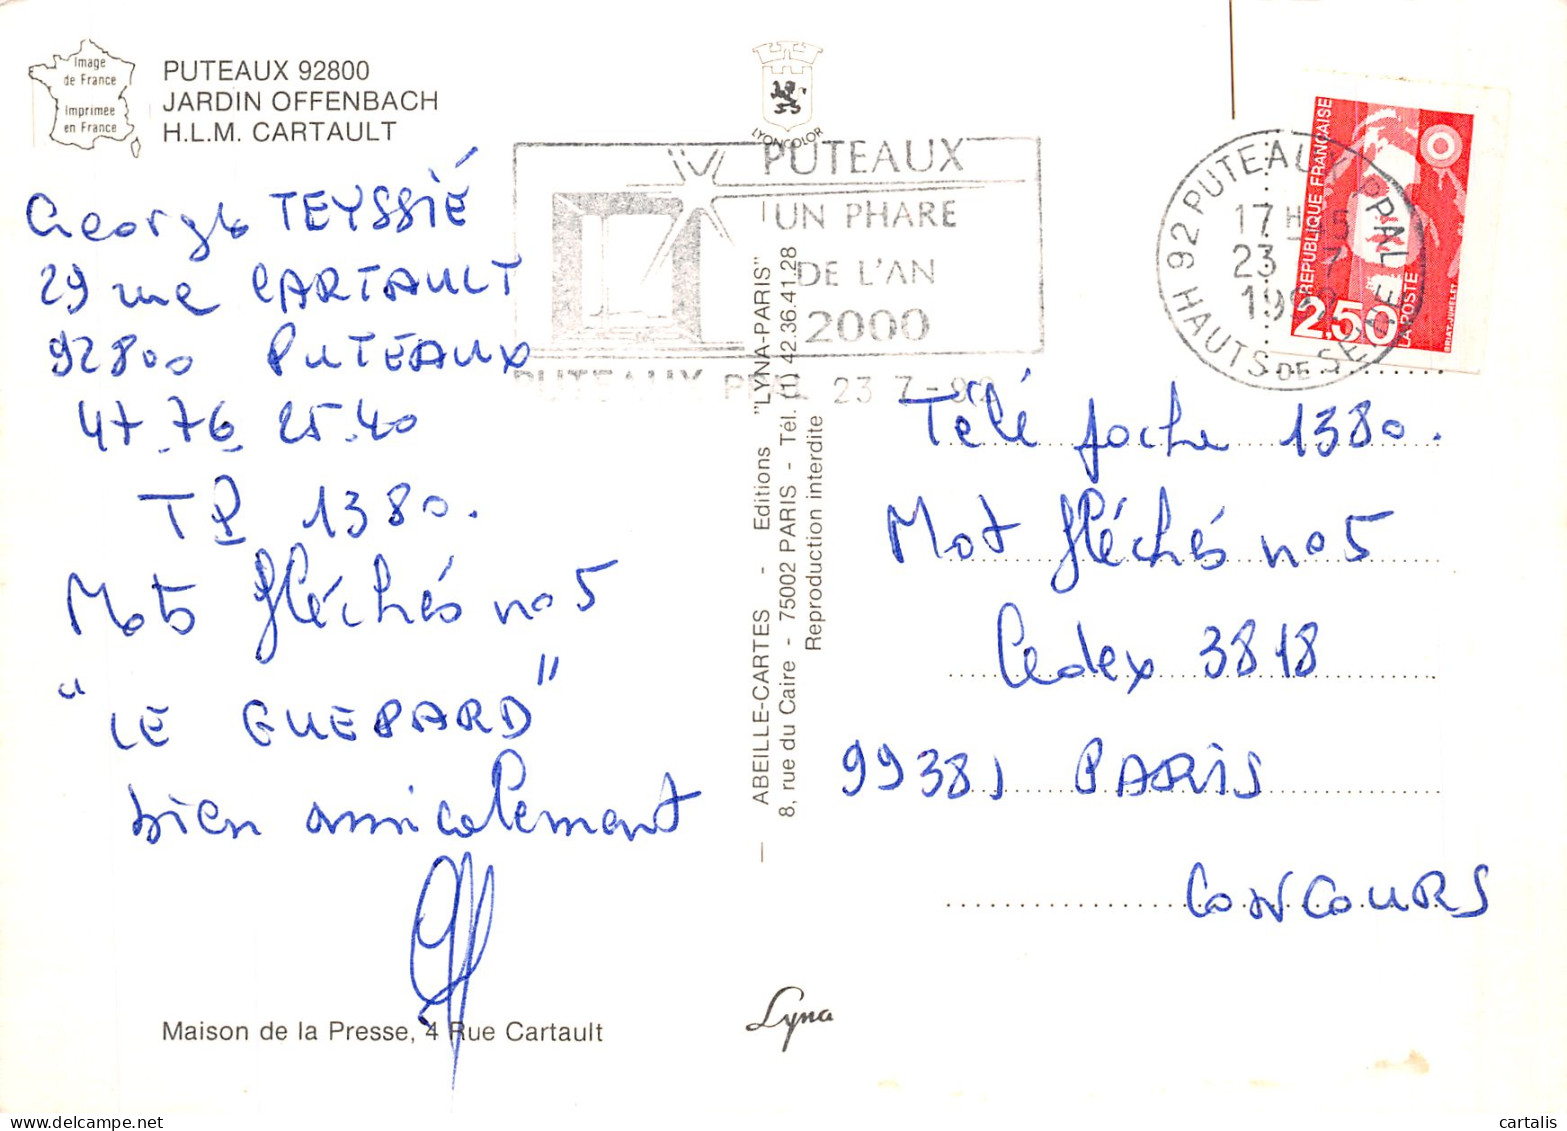 Image
de France
Imprimée
en France
PUTEAUX 92800
JARDIN OFFENBACH
H.L.M. CARTAULT
LYONCOLOR
PUTEAUX
UN PHARE
DE L'AN
2000
PUTEAUX PPAL 23 7-92
92 PUTEAUX PPAL
17H15
23 7
1992
HAUTS DE SEINE
REPUBLIQUE FRANÇAISE
2,50
LA POSTE
BRIAT-JUMELET
George TEYSSIÉ
29 rue CARTAULT
92800 PUTEAUX
47.76 25.40
TP 1380.
Mots fléchés no 5
"LE GUEPARD"
bien amicalement
Maison de la Presse, 4 Rue Cartault
— ABEILLE-CARTES - Editions "LYNA-PARIS"
8, rue du Caire - 75002 PARIS - Tél. (1) 42.36.41.28
Reproduction interdite
Lyna
Télé poche 1380.
Mot fléchés no 5
Cedex 3818
99381 PARIS
CONCOURS